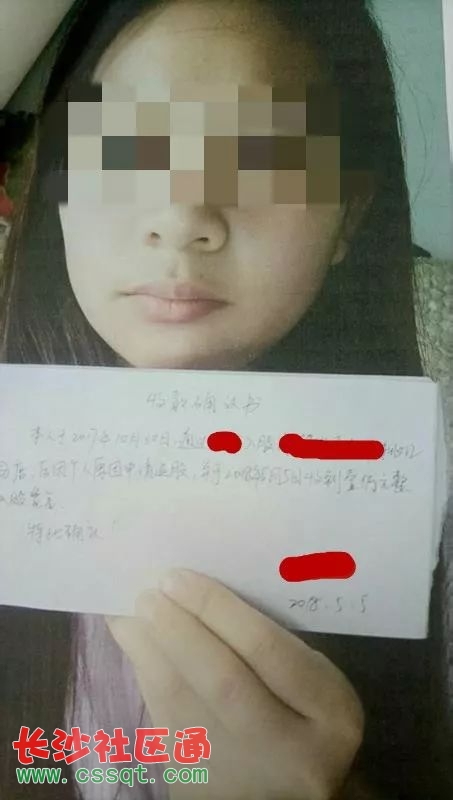 收款确认书
本人于2017年10月20日,通过 入股
店,后因个人原因申请退股,并于2018年5月5日收到壹仟元整
特此确认!
2018.5.5
长沙社区通
www.cssqt.com